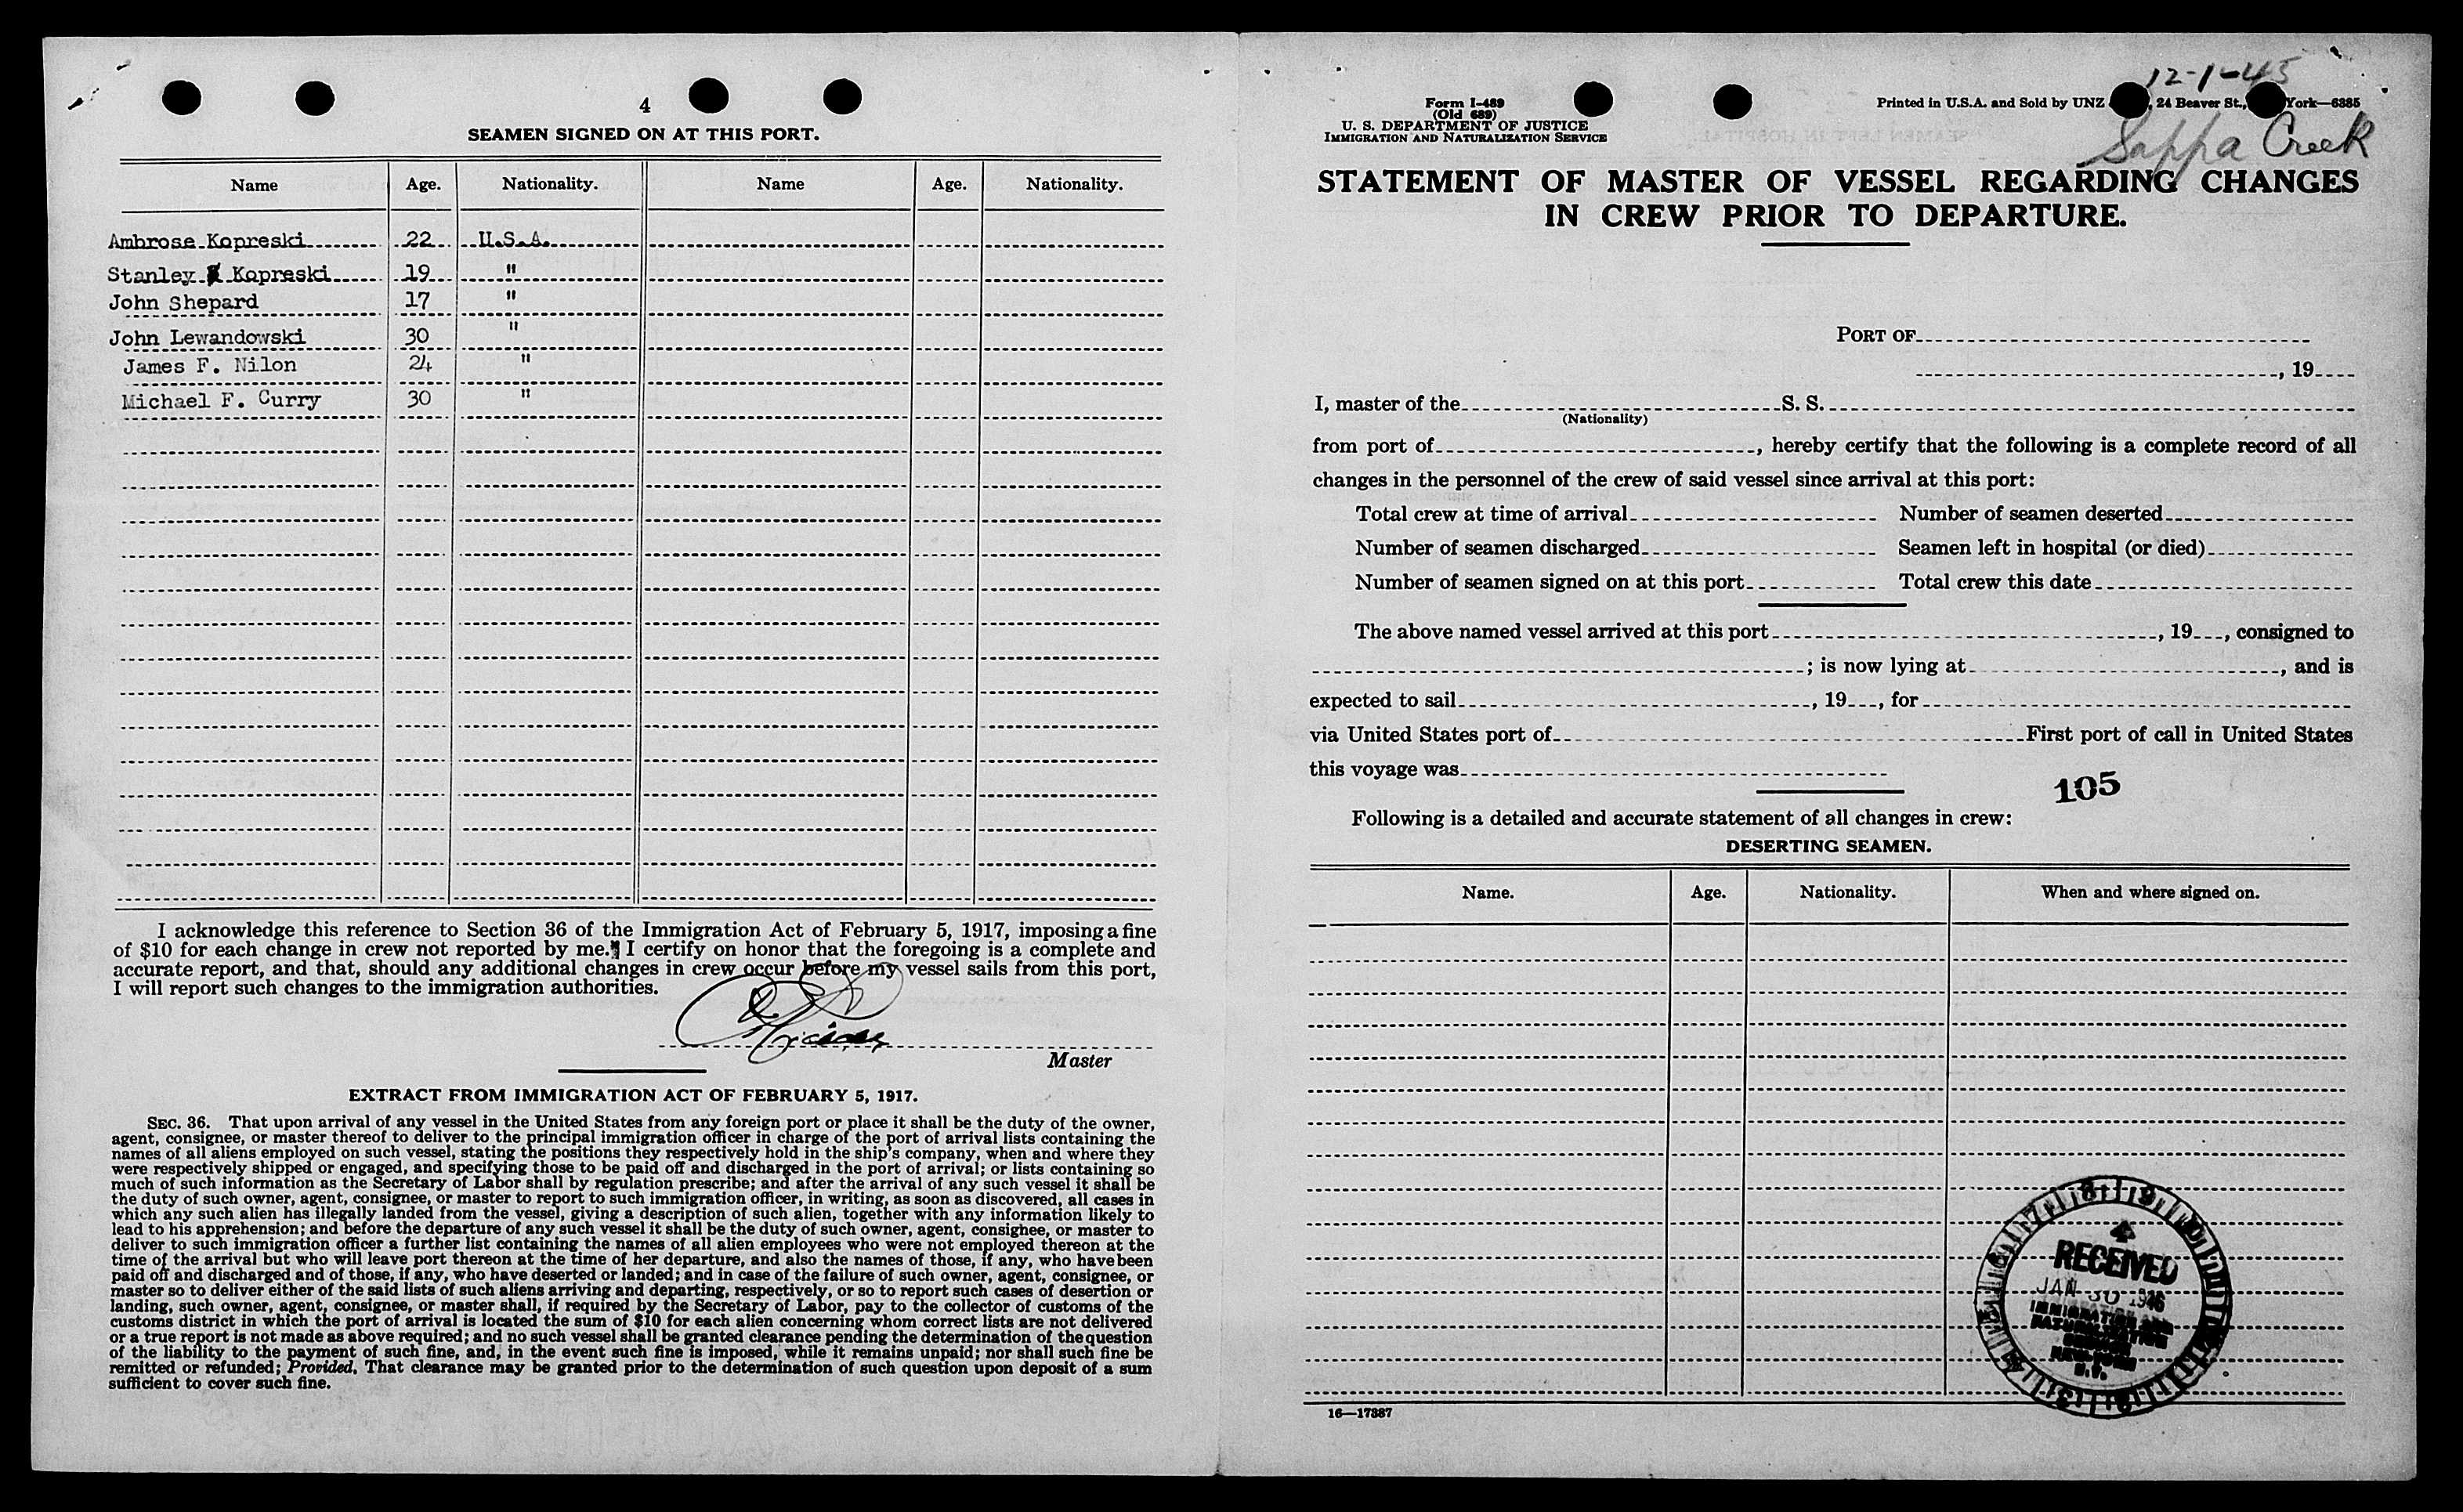 4
SEAMEN SIGNED ON AT THIS PORT.
Name Age. Nationality. Name Age. Nationality.
Ambrose Kopreski 22 U.S.A.
Stanley Kopreski 19 "
John Shepard 17 "
John Lewandowski 30 "
James F. Nilon 24 "
Michael F. Curry 30 "
I acknowledge this reference to Section 36 of the Immigration Act of February 5, 1917, imposing a fine
of $10 for each change in crew not reported by me. I certify on honor that the foregoing is a complete and
accurate report, and that, should any additional changes in crew occur before my vessel sails from this port,
I will report such changes to the immigration authorities.
Master
EXTRACT FROM IMMIGRATION ACT OF FEBRUARY 5, 1917.
SEC. 36. That upon arrival of any vessel in the United States from any foreign port or place it shall be the duty of the owner,
agent, consignee, or master thereof to deliver to the principal immigration officer in charge of the port of arrival lists containing the
names of all aliens employed on such vessel, stating the positions they respectively hold in the ship's company, when and where they
were respectively shipped or engaged, and specifying those to be paid off and discharged in the port of arrival; or lists containing so
much of such information as the Secretary of Labor shall by regulation prescribe; and after the arrival of any such vessel it shall be
the duty of such owner, agent, consignee, or master to report to such immigration officer, in writing, as soon as discovered, all cases in
which any such alien has illegally landed from the vessel, giving a description of such alien, together with any information likely to
lead to his apprehension; and before the departure of any such vessel it shall be the duty of such owner, agent, consignee, or master to
deliver to such immigration officer a further list containing the names of all alien employees who were not employed thereon at the
time of the arrival but who will leave port thereon at the time of her departure, and also the names of those, if any, who have been
paid off and discharged and of those, if any, who have deserted or landed; and in case of the failure of such owner, agent, consignee, or
master so to deliver either of the said lists of such aliens arriving and departing, respectively, or so to report such cases of desertion or
landing, such owner, agent, consignee, or master shall, if required by the Secretary of Labor, pay to the collector of customs of the
customs district in which the port of arrival is located the sum of $10 for each alien concerning whom correct lists are not delivered
or a true report is not made as above required; and no such vessel shall be granted clearance pending the determination of the question
of the liability to the payment of such fine, and, in the event such fine is imposed, while it remains unpaid; nor shall such fine be
remitted or refunded; Provided, That clearance may be granted prior to the determination of such question upon deposit of a sum
sufficient to cover such fine.
12-1-45
Form I-489
(Old 689)
U. S. DEPARTMENT OF JUSTICE
IMMIGRATION AND NATURALIZATION SERVICE
Printed in U.S.A. and Sold by UNZ , 24 Beaver St., York—6385
Sappa Creek
STATEMENT OF MASTER OF VESSEL REGARDING CHANGES
IN CREW PRIOR TO DEPARTURE.
PORT OF
, 19
I, master of the S. S.
(Nationality)
from port of , hereby certify that the following is a complete record of all
changes in the personnel of the crew of said vessel since arrival at this port:
Total crew at time of arrival Number of seamen deserted
Number of seamen discharged Seamen left in hospital (or died)
Number of seamen signed on at this port Total crew this date
The above named vessel arrived at this port , 19 , consigned to
; is now lying at , and is
expected to sail , 19 , for
via United States port of First port of call in United States
this voyage was
105
Following is a detailed and accurate statement of all changes in crew:
DESERTING SEAMEN.
Name. Age. Nationality. When and where signed on.
4
RECEIVED
JAN 30 1946
IMMIGRATION AND
NATURALIZATION
NEW YORK
N.Y.
16—17387